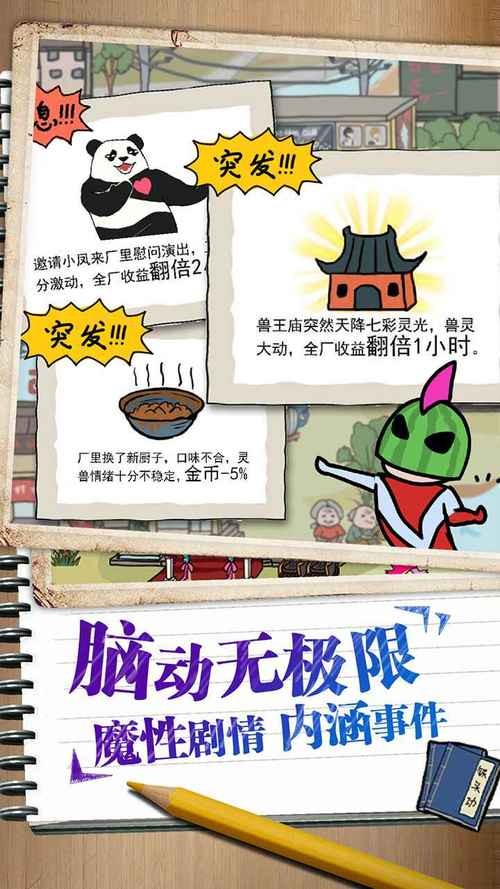 息!!!
邀请小凤来厂里慰问演出,
分激动,全厂收益翻倍2
突发!!!
兽王庙突然天降七彩灵光,兽灵
大动,全厂收益翻倍1小时。
突发!!!
厂里换了新厨子,口味不合,灵
兽情绪十分不稳定,金币-5%
脑动无极限
魔性剧情 内涵事件
馒头功